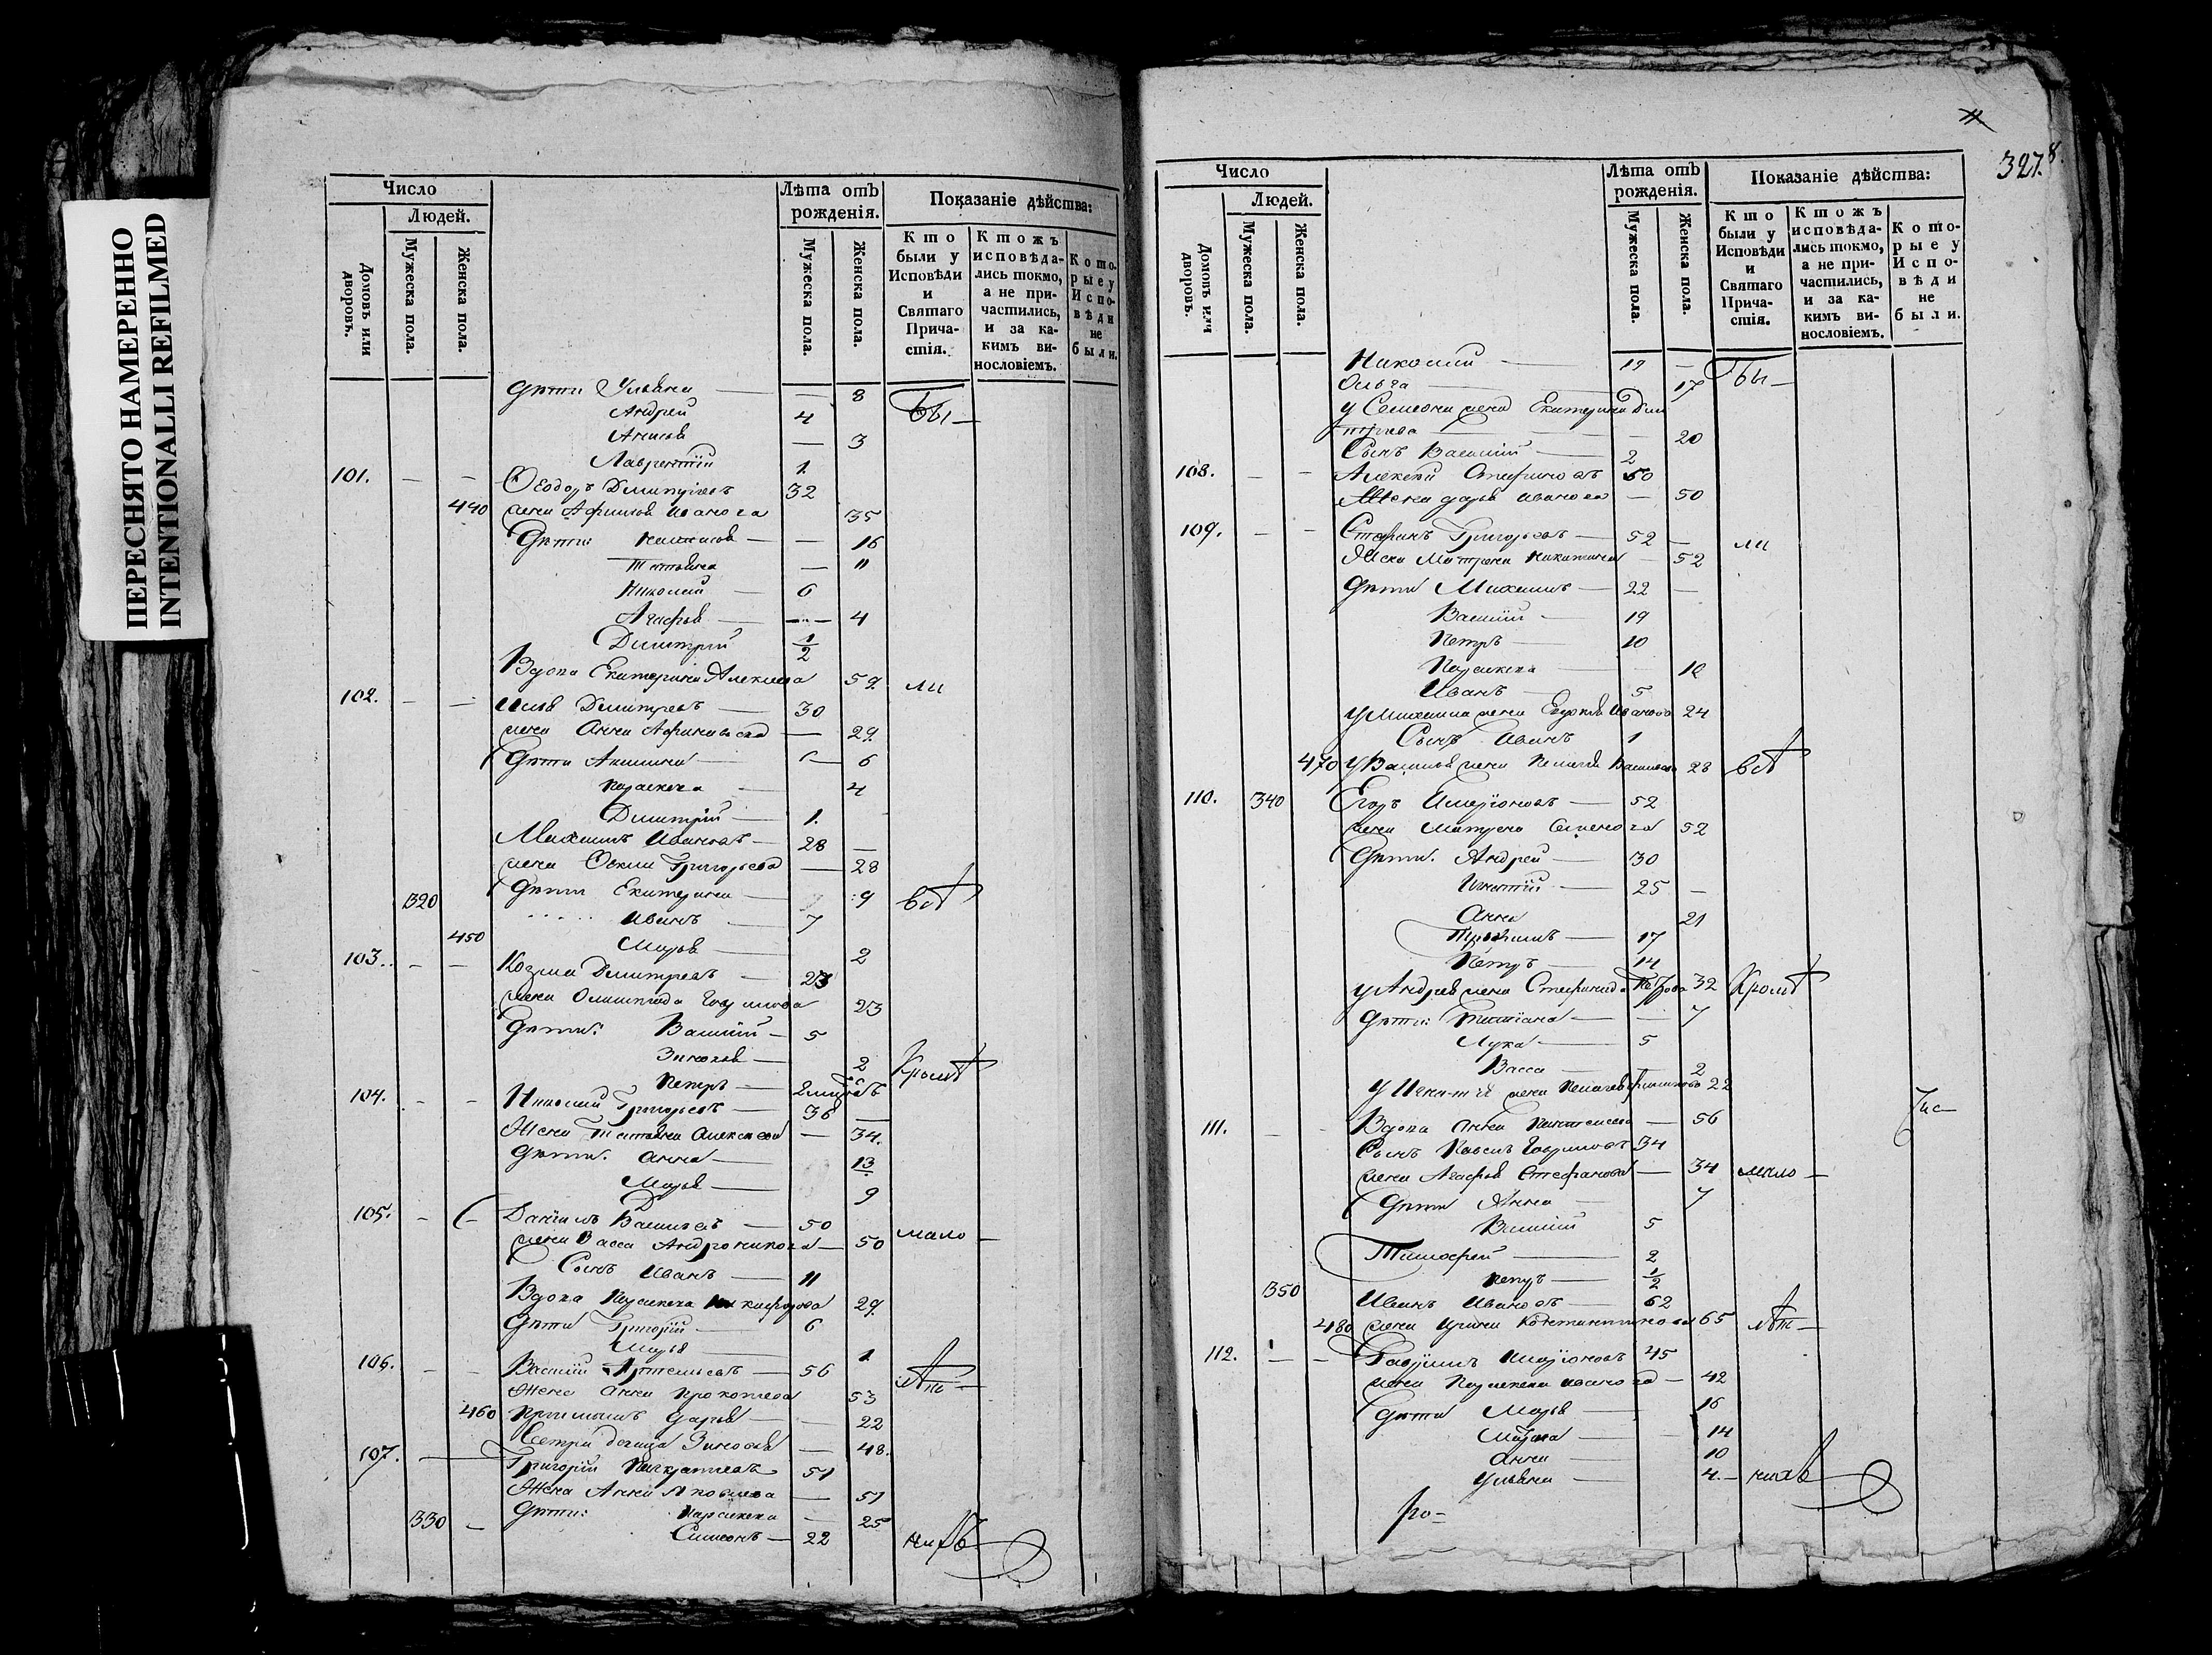 ПЕРЕСНЯТО НАМЕРЕННО
INTENTIONALLI REFILMED
Число
Людей.
Домовъ или дворовъ.
Мужеска пола.
Женска пола.
Лѣта отъ рожденія.
Мужеска пола.
Женска пола.
Показаніе дѣйства:
Кто были у Исповѣди и Святаго Прича-стія.
Ктожъ исповѣда-лись токмо, а не при-частились, и за ка-кимъ ви-нословіемъ.
Кото-рые у Испо-вѣди не были.
Дѣти Ульяна — 8 Бы-
Андрей 4
Анисья — 3
Лаврентій 1
101. Ѳеодоръ Димитріевъ 32
440 жена Афимья Иванова 35
Дѣти: — 16
Татьяна — 11
Николай 6
Агафья — 4
Димитрій 1/2
Вдова Екатерина Алексеева 59 ли
102. Илья Димитревъ 30
жена Анна — 29
Дѣти Акилина — 6
Параскева 4
Димитрій 1
Михаилъ Ивановъ 28 —
жена Григорьева — 28
320 Дѣти Екатерина 9 всѣ
Иванъ 7
450 Марья 2
103. Козма Димитревъ 23
жена Олимпіада Гаврилова 23
Дѣти: Василій 5
Зиновья 2 Кромѣ
Петръ
104. Николай Григорьевъ 36
Жена Татьяна Алексеева — 34.
Дѣти. Анна 13
Марья 9
105. Даніилъ Васильевъ 50 мало-
жена Васса Андроникова — 50
Сынъ Иванъ 11
Вдова Параскева Никифорова 29
Дѣти Григорій 6
Марья 1
106. Василій Артемьевъ 56 лѣт-
Жена Анна Прокопіева 53
460 Дарья 22
Сестра девица Зиновья — 48.
107. Григорій Панкратіевъ 51
Жена Анна Яковлева — 51
330 Дѣти: Параскева — 25
Симеонъ 22 нихъ
327.
Число
Людей.
Домовъ или дворовъ.
Мужеска пола.
Женска пола.
Лѣта отъ рожденія.
Мужеска пола.
Женска пола.
Показаніе дѣйства:
Кто были у Исповѣди и Святаго Прича-стія.
Ктожъ исповѣда-лись токмо, а не при-частились, и за ка-кимъ ви-нословіемъ.
Кото-рые у Испо-вѣди не были.
Николай 19 — Бы-
Ольга 17
у Симеона жена Екатерина Дми
тріева — 20
Сынъ Василій 2
108. Алексей Стефановъ 50
Жена Дарья Иванова — 50
109. Стефанъ Григорьевъ 52 — ли
Жена Матрена Никитина — 52
Дѣти Михаилъ 22
Василій 19
Петръ 10
Параскева 12
Иванъ 5
у Михаила жена Евдокія Иванова 24
Сынъ Иванъ 1
470 у Василья жена Пелагея Васильева 23 всѣ
110. 340 Егоръ Иларіоновъ 52
жена Матрена Семенова 52
Дѣти. Андрей 30
Игнатій 25 —
Анна 21
Трофимъ 17
Петръ 14
у Андрея жена Стефанида Петрова 32 Кромѣ
Дѣти: Татіана — 7
Лука 5
Васса 2
у Игнатія жена Пелагея Филипова 22
111. Вдова Анна 56
Сынъ Павелъ Гавриловъ 34
жена Агафья Стефанова 34 мало-
Дѣти Анна 7
Василій 5
Тимофей 2
Петръ 1/2
350 Иванъ Ивановъ 62
480 жена Ирина Константинова 65 лѣт-
112. Гавріилъ Иларіоновъ 45
жена Параскева Иванова — 42
Дѣти Марья 16
Марѳа 14
Анна 10
Ульяна 4. нихъ